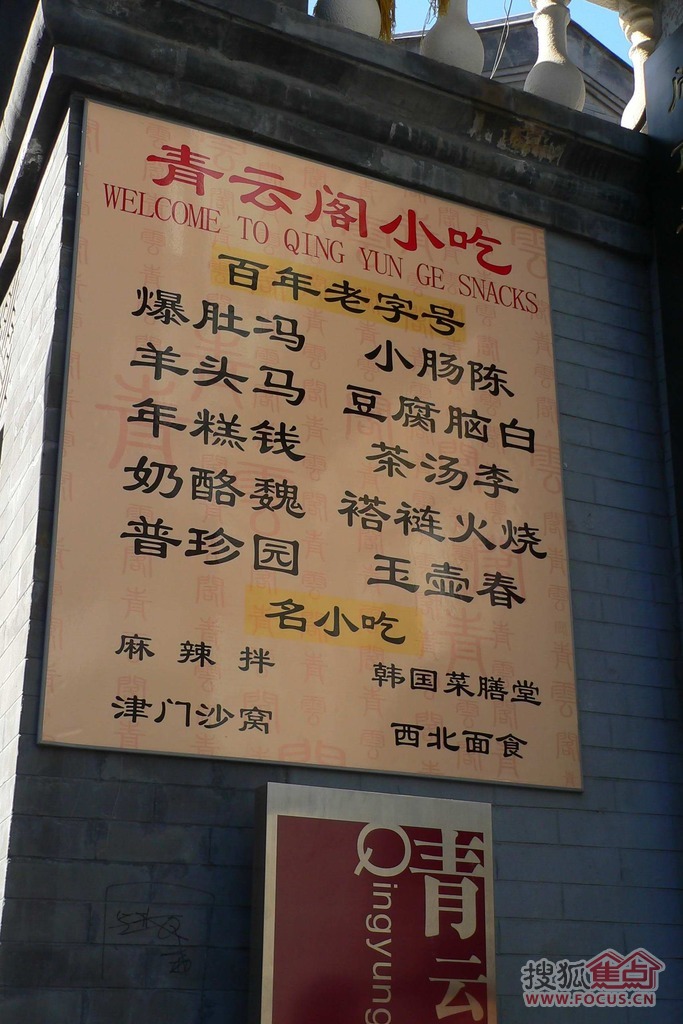 青云阁小吃
WELCOME TO QING YUN GE SNACKS
百年老字号
爆肚冯 小肠陈
羊头马 豆腐脑白
年糕钱 茶汤李
奶酪魏 褡裢火烧
普珍园 玉壶春
名小吃
麻辣拌 韩国菜膳堂
津门沙窝 西北面食
青云
Qingyung
搜狐焦点
WWW.FOCUS.CN